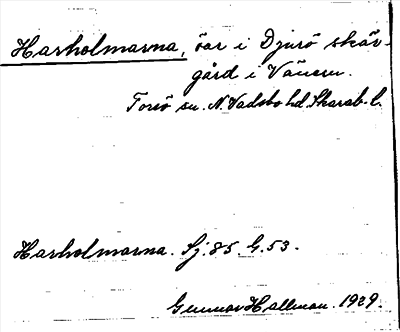 Harholmarna, öar i Djurö skär-
gård i Vänern.
Torsö sn. N. Vadsbo hd. Skarab. l.
Harholmarna. Sj. 85. G. 53.
Gunnar Hallman. 1929.